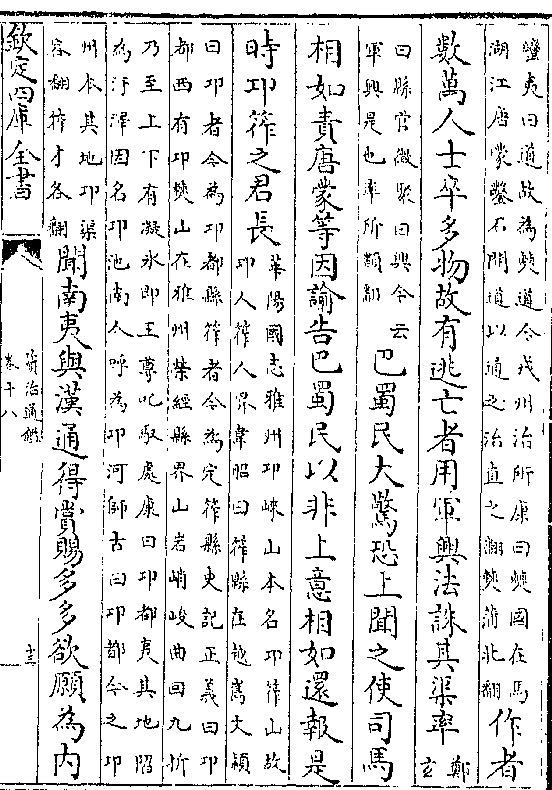 蠻夷曰道故為僰道今戎州治所康曰僰國在馬
湖江唐蒙鑿石開道以通之治直之翻僰蒲北翻
作者
數萬人士卒多物故有逃亡者用軍興法誅其渠率
鄭玄
曰縣官徵聚曰興今云
軍興是也率所類翻
巴蜀民大驚恐上聞之使司馬
相如責唐蒙等因諭告巴蜀民以非上意相如還報是
時卭筰之君長
華陽國志雅州卭崍山本名卭筰山故
卭人筰人界韋昭曰筰縣在越嶲文穎
曰卭者今為卭都縣筰者今為定筰縣史記正義曰卭
都西有卭僰山在雅州榮經縣界山岩峭峻曲回九折
乃至上下有凝氷即王尊叱馭處康曰卭都夷其地陷
為汙澤因名卭池南人呼為卭河師古曰卭都今之卭
州本其地卭渠
容翻筰才各翻
聞南夷與漢通得賞賜多多欲願為内
欽定四庫全書
資治通鑑
卷十八
十三